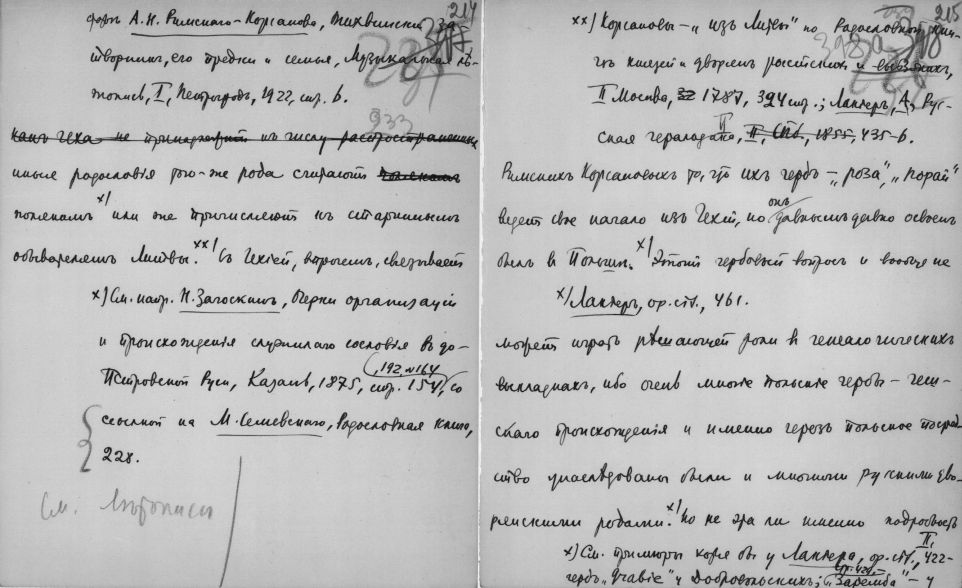 214
форъ А. Н. Римскаго-Корсакова, Тихвинскій за-
творникъ, его предки и семья, Музыкальная лѣ-
топись, I, Петроградъ, 1922, стр. 6.
233
какъ чеха не принадлежитъ къ числу распространенныхъ
иныя родословія того-же рода считаютъ
полякомъ x) или же причисляютъ къ стариннымъ
обывателямъ Литвы. xx) Съ Чехіей, впрочемъ, связываетъ
x) См. напр. Н. Загоскинъ, Очерки организаціи
и происхожденія служилаго сословія въ до-
Петровской Руси, Казань, 1875, стр. 154, со
192 и 164
ссылкой на М. Семевскаго, Родословная книга,
228.
См. Лѣтописи
215
xx) Корсаковы - "изъ Литвы" по Родословной кни-
гѣ князей и дворянъ россійскихъ и выѣзжихъ,
II Москва, 1787, 394 стр.; Лакіеръ, А., Рус-
ская геральдика, II, Спб., 1855, 435-6.
II
Римскихъ Корсаковыхъ то, что ихъ гербъ - "роза", "порай"
ведетъ свое начало изъ Чехіи, но онъ давнымъ давно освоенъ
былъ въ Польшѣ. x) Этотъ гербовый вопросъ и вообще не
x) Лакіеръ, op. cit., 461.
можетъ играть рѣшающей роли въ генеалогическихъ
выкладкахъ, ибо очень многіе польскіе гербы - чеш-
скаго происхожденія и именно черезъ польское посред-
ство унаслѣдованы были и многими русскими дво-
рянскими родами. x) Но не эта ли именно подробность
x) См. примѣры хотя бы у Лакіера, op. cit., II, 422-
гербъ у Добровольскихъ; стр. 424, - "Заремба" - у